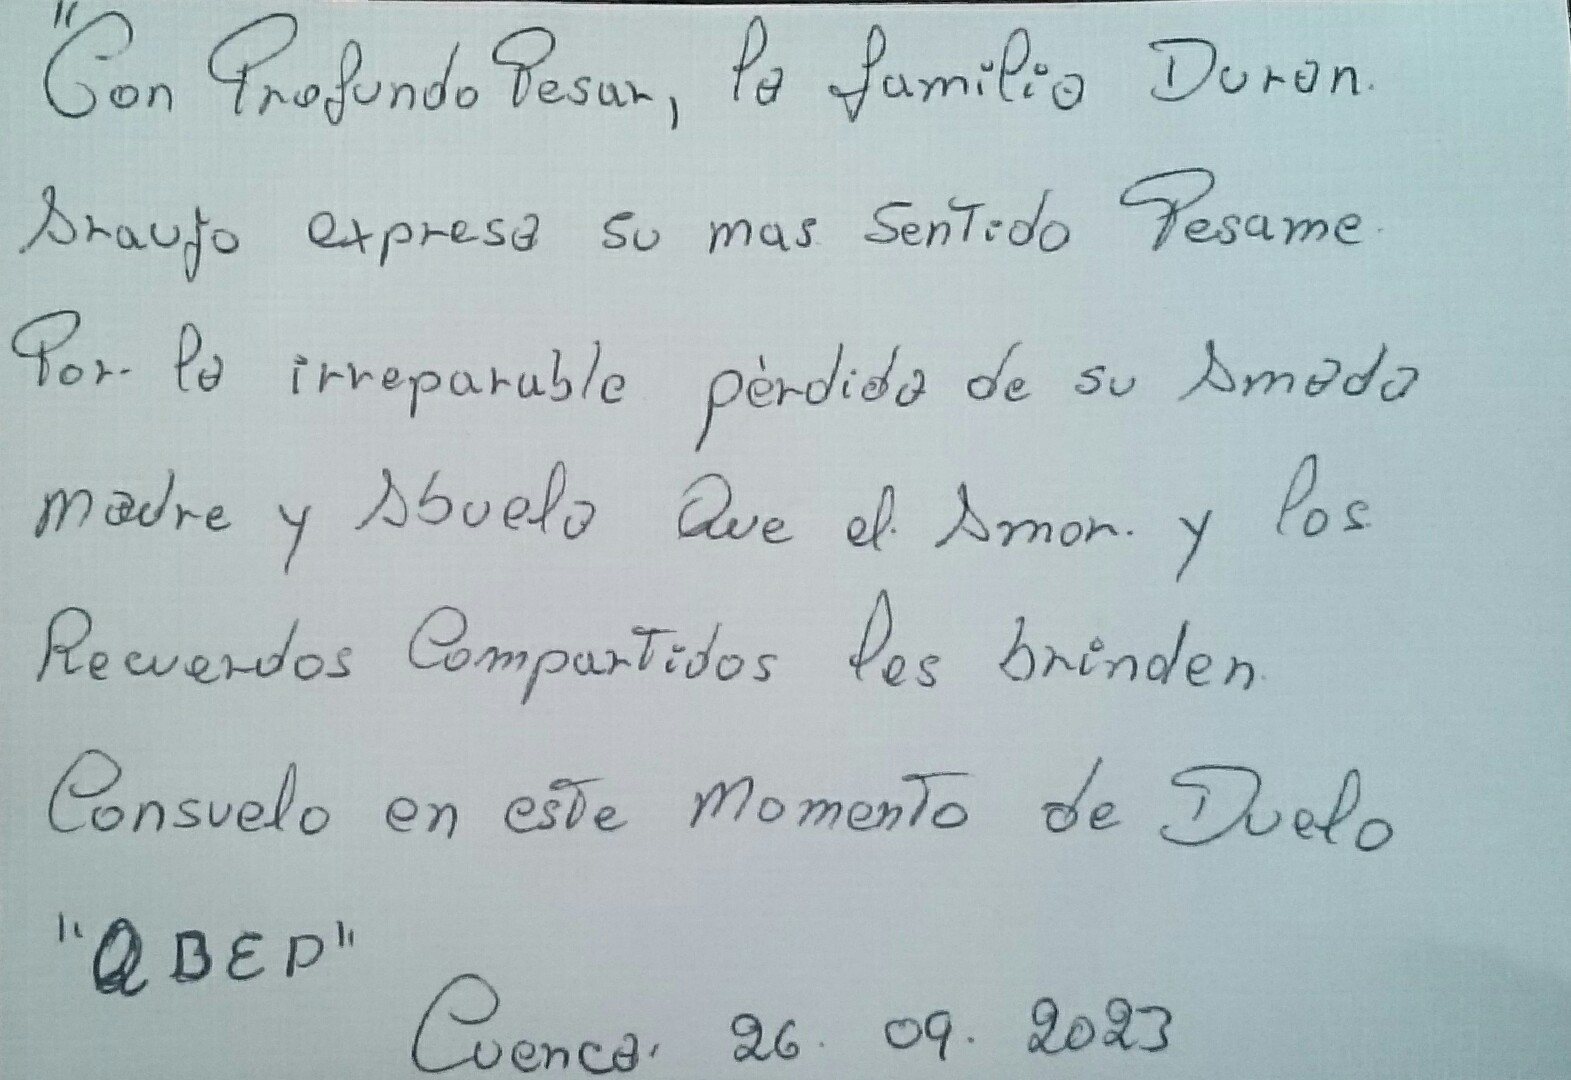 "Con Profundo Pesar, la familia Duran.
Araujo expresa su mas Sentido Pesame.
Por la irreparable pèrdida de su Amada
madre y Abuela Que el Amor. y los
Recuerdos Compartidos les brinden.
Consuelo en este Momento de Duelo
"QBED"
Cuenca. 26. 09. 2023